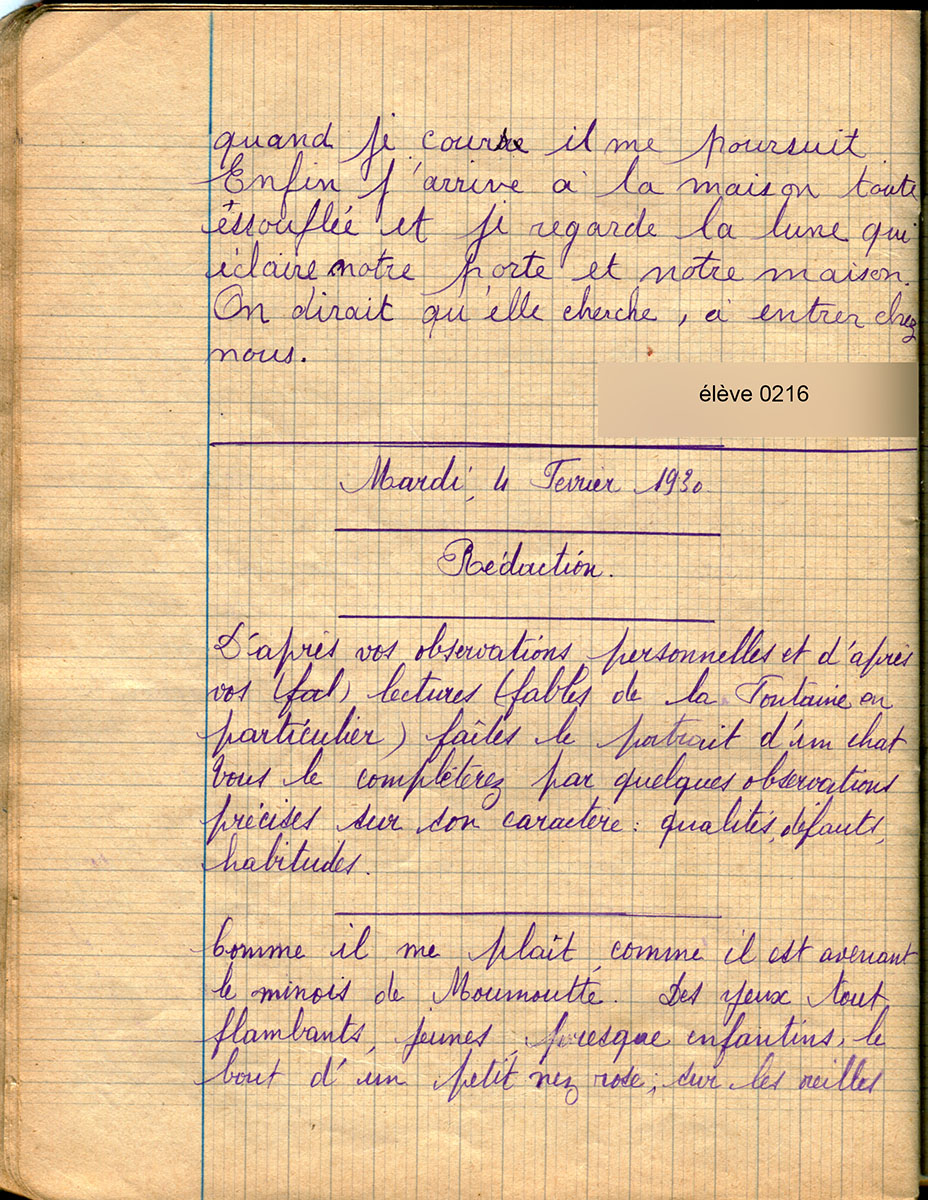 quand je course il me poursuit
Enfin j'arrive à la maison toute
éssouflée et je regarde la lune qui
éclaire notre porte et notre maison.
On dirait qu'elle cherche, à entrer chez
nous.
élève 0216
Mardi, 4 Fevrier 1930.
Rédaction.
D'après vos observations personnelles et d'après
vos (fal) lectures (fables de la Fontaine en
particulier) faîtes le portrait d'un chat
Vous le complèterez par quelques observations
précises sur son caractère : qualités, défauts,
habitudes.
Comme il me plaît, comme il est avenant
le minois de Moumoutte. Des yeux tout
flambants, jeunes, presque enfantins, le
bout d'un petit nez rose; sur les oreilles